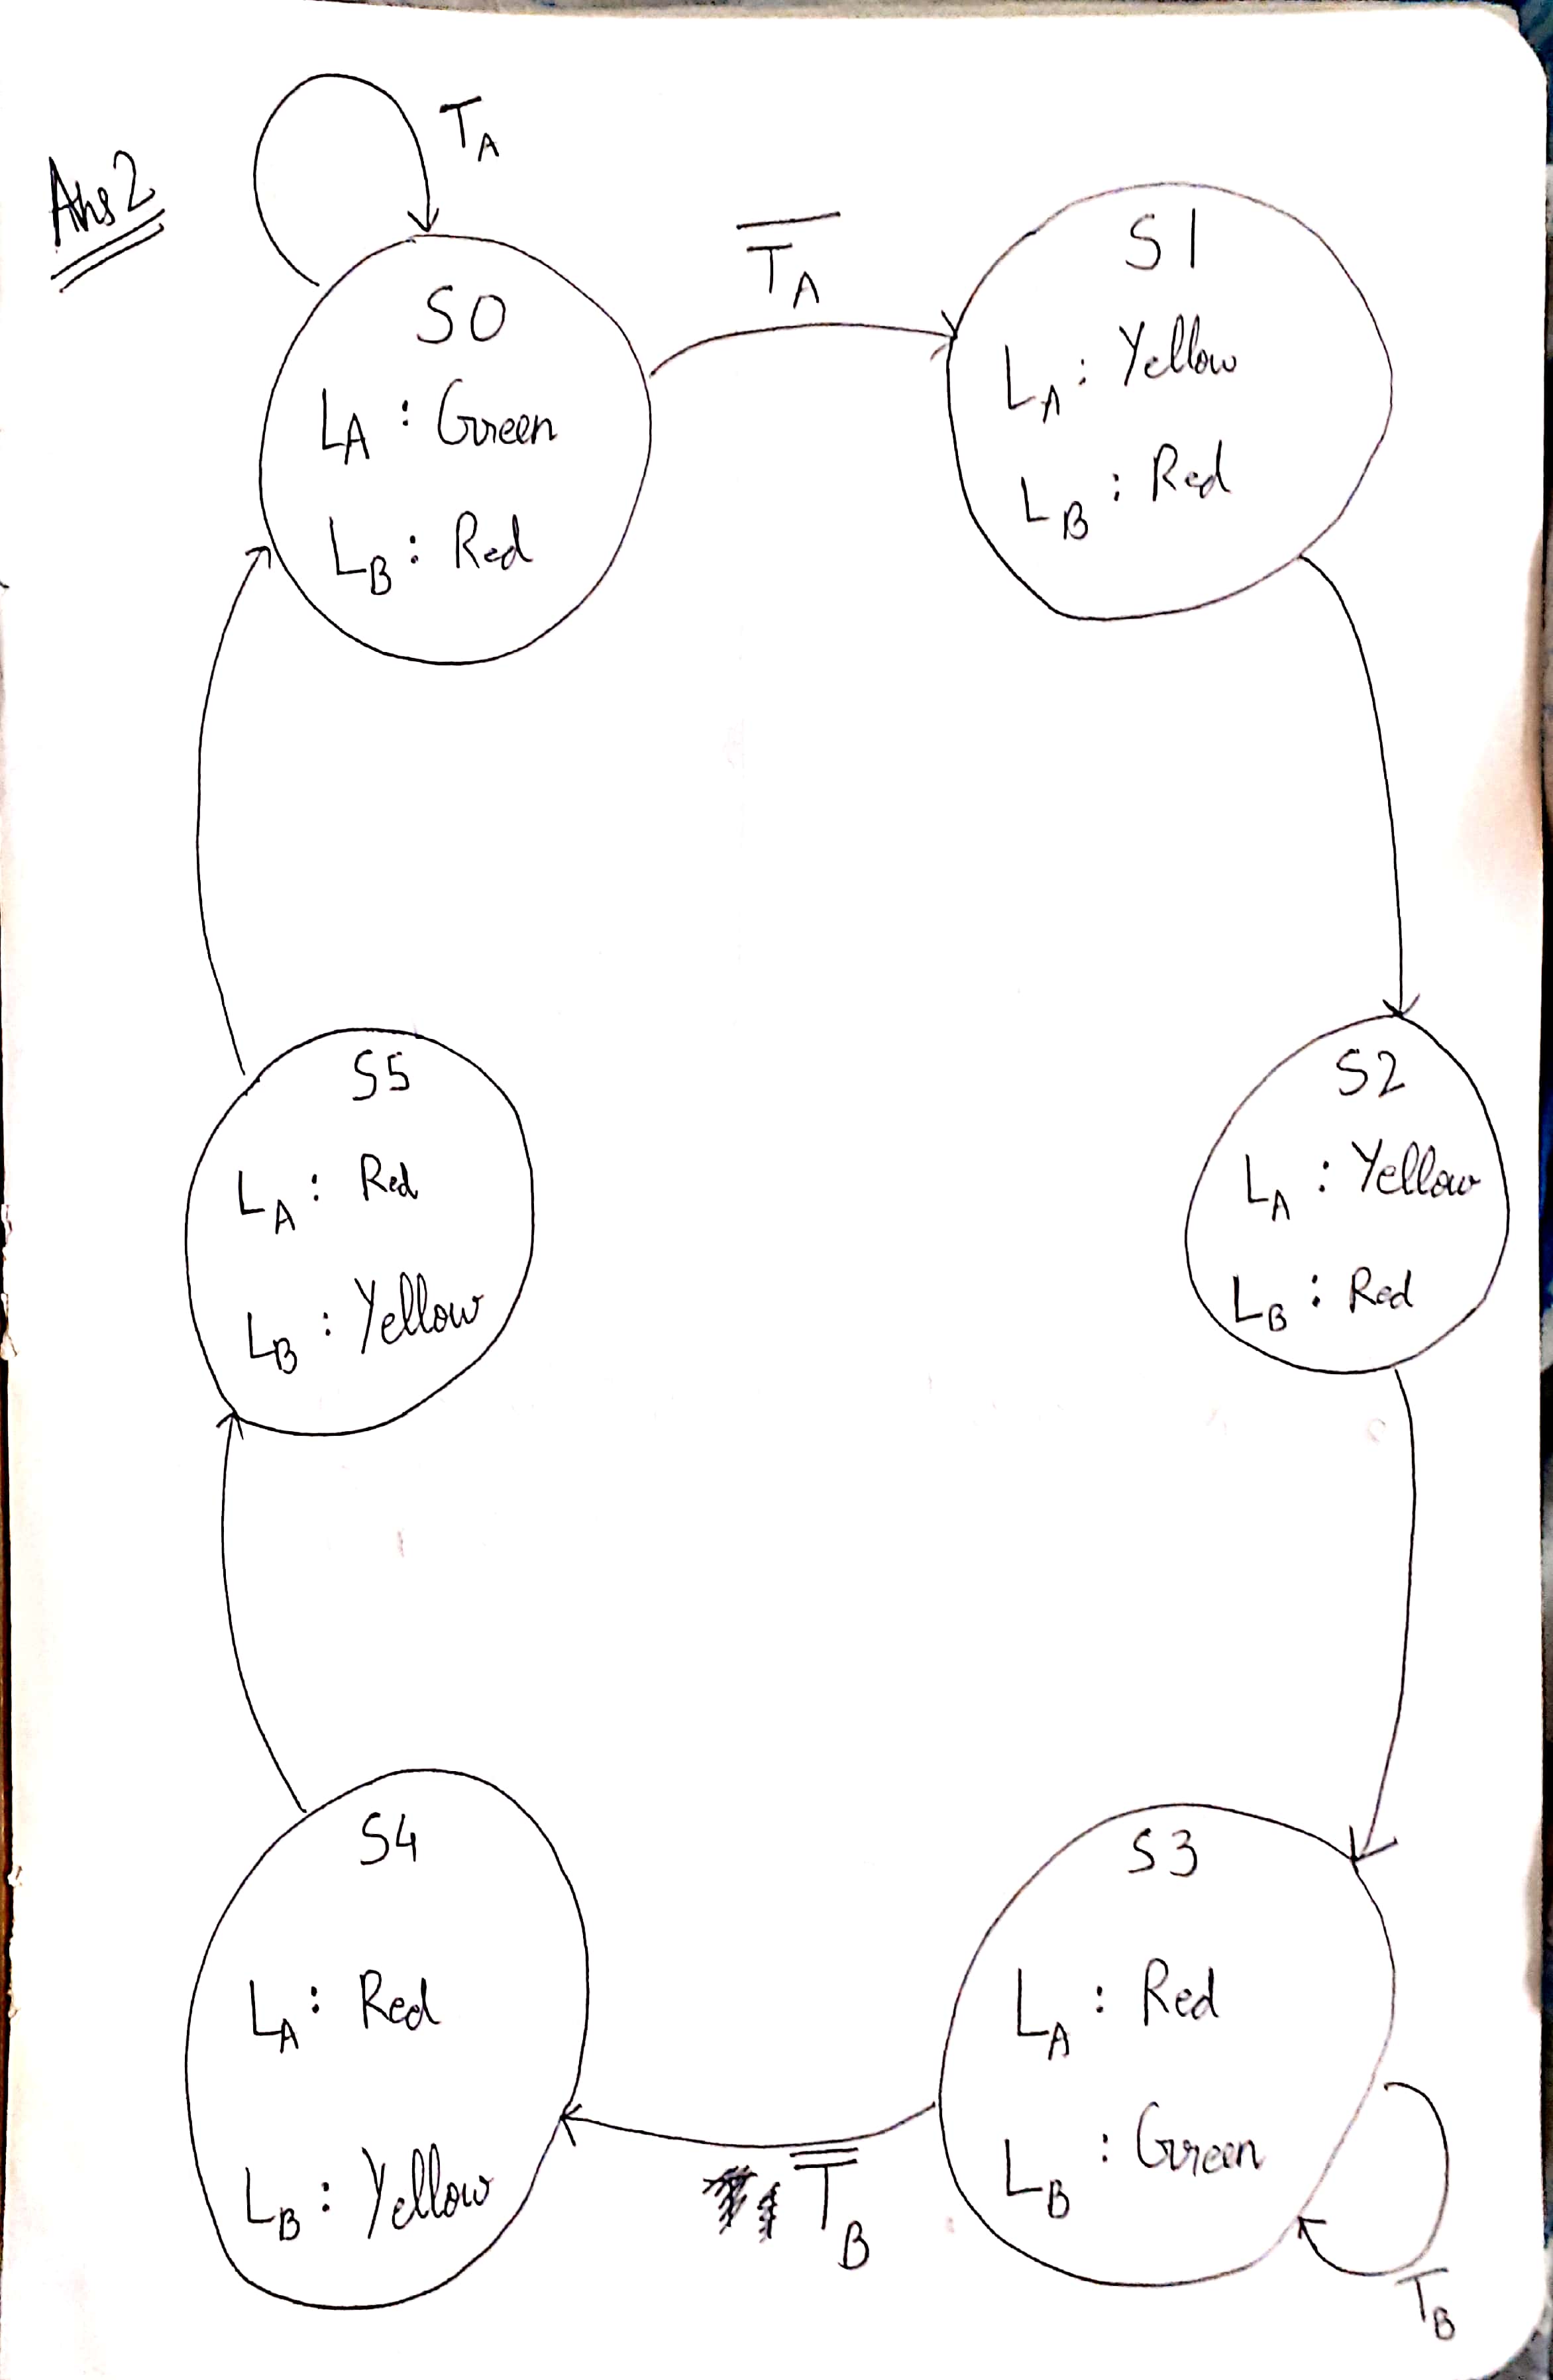 Ans 2
T_A
S0
L_A : Green
L_B : Red
\overline{T_A}
S1
L_A : Yellow
L_B : Red
S2
L_A : Yellow
L_B : Red
S3
L_A : Red
L_B : Green
T_B
\overline{T_B}
S4
L_A : Red
L_B : Yellow
S5
L_A : Red
L_B : Yellow